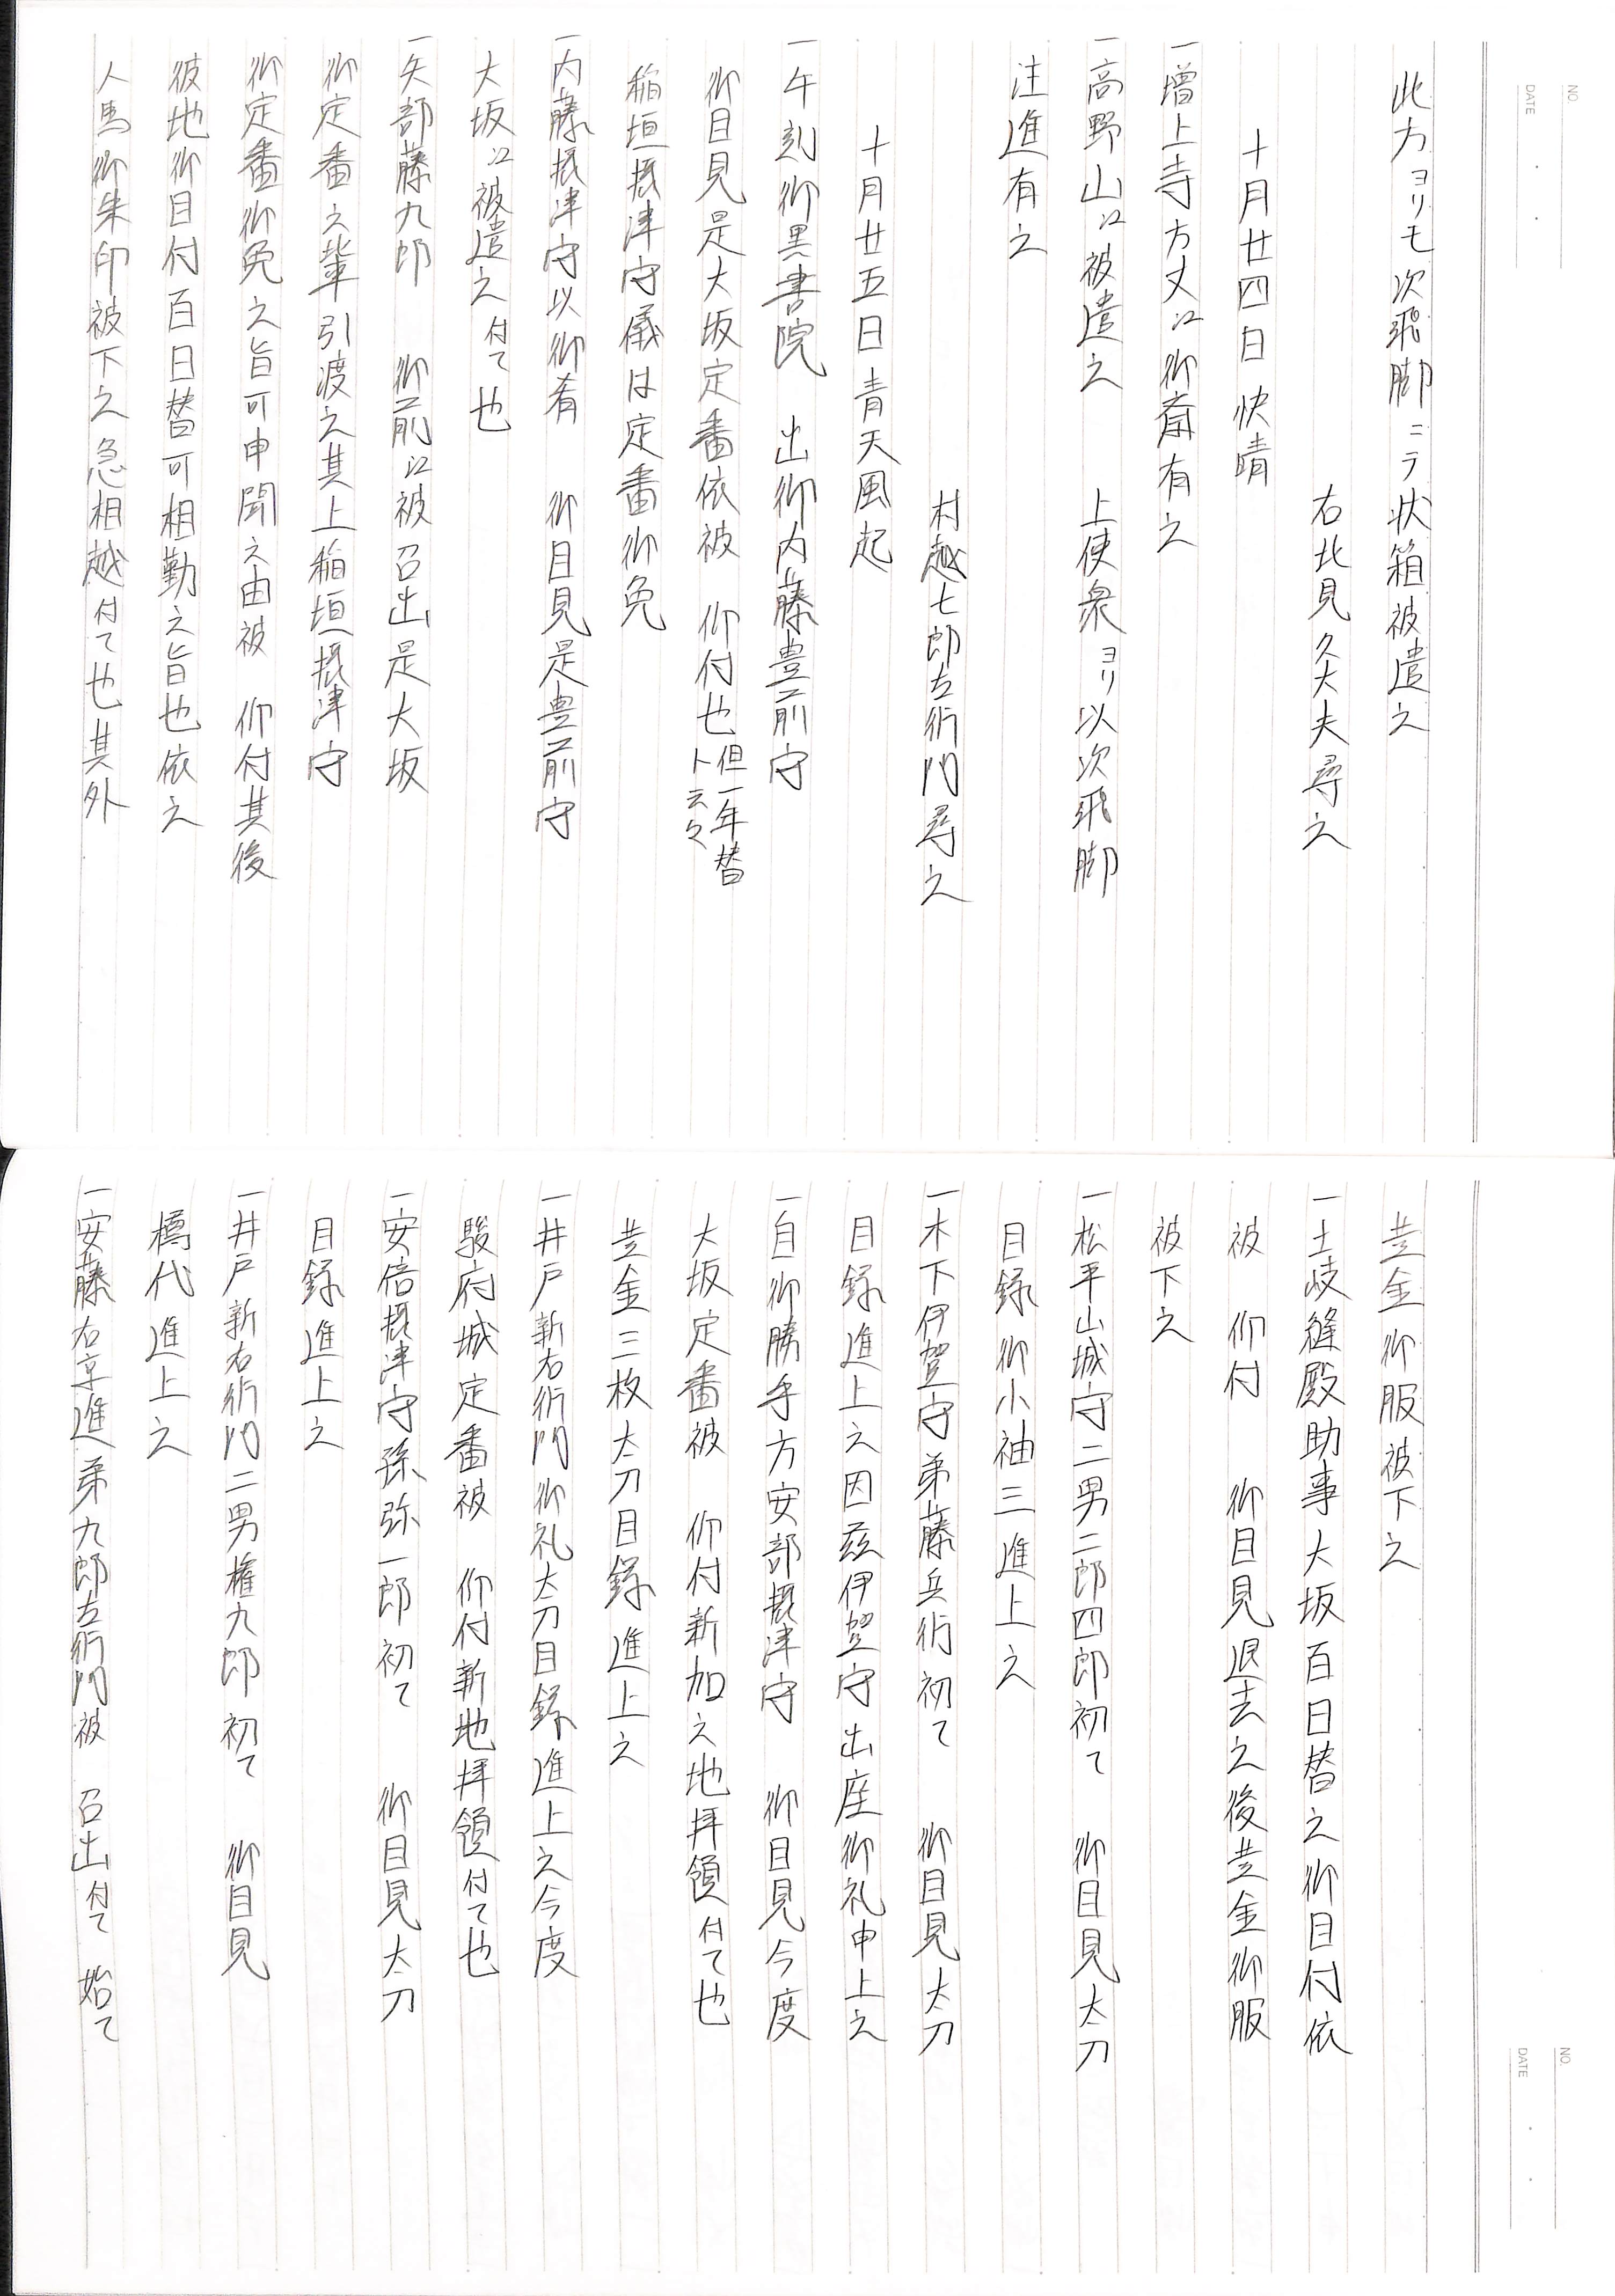 此方ヨリモ次飛脚ニテ状箱被遣之
右北見久大夫尋之
十月廿四日快晴
一増上寺方丈江御斎有之
一高野山江被遣之　上使衆ヨリ以次飛脚
注進有之
村越七郎左衛門尋之
十月廿五日青天風起
一午刻御黒書院　出御内藤豊前守
御目見是大坂定番依被　仰付也但一年替ト云々
稲垣摂津守儀は定番御免
一内藤摂津守以御肴　御目見是豊前守
大坂江被遣之付て也
一矢部藤九郎　御前江被召出是大坂
御定番之輩引渡之其上稲垣摂津守
御定番御免之旨可申聞之由被　仰付其後
彼地御目付百日替可相勤之旨也依之
人馬御朱印被下之急相越付て也其外
黄金御服被下之
一土岐縫殿助事大坂百日替之御目付依
被　仰付　御目見退去之後黄金御服
被下之
一松平山城守二男二郎四郎初て　御目見太刀
目録御小袖三進上之
一木下伊賀守弟藤兵衛初て　御目見太刀
目録進上之因茲伊賀守出座御礼申上之
一自御勝手方安部摂津守　御目見今度
大坂定番被　仰付新加之地拝領付て也
黄金三枚太刀目録進上之
一井戸新右衛門御礼太刀目録進上之今度
駿府城定番被　仰付新地拝領付て也
一安倍摂津守孫弥一郎初て　御目見太刀
目録進上之
一井戸新右衛門二男権九郎初て　御目見
樽代進上之
一安藤右京進弟九郎左衛門被　召出付て　始て
NO.
DATE
NO.
DATE